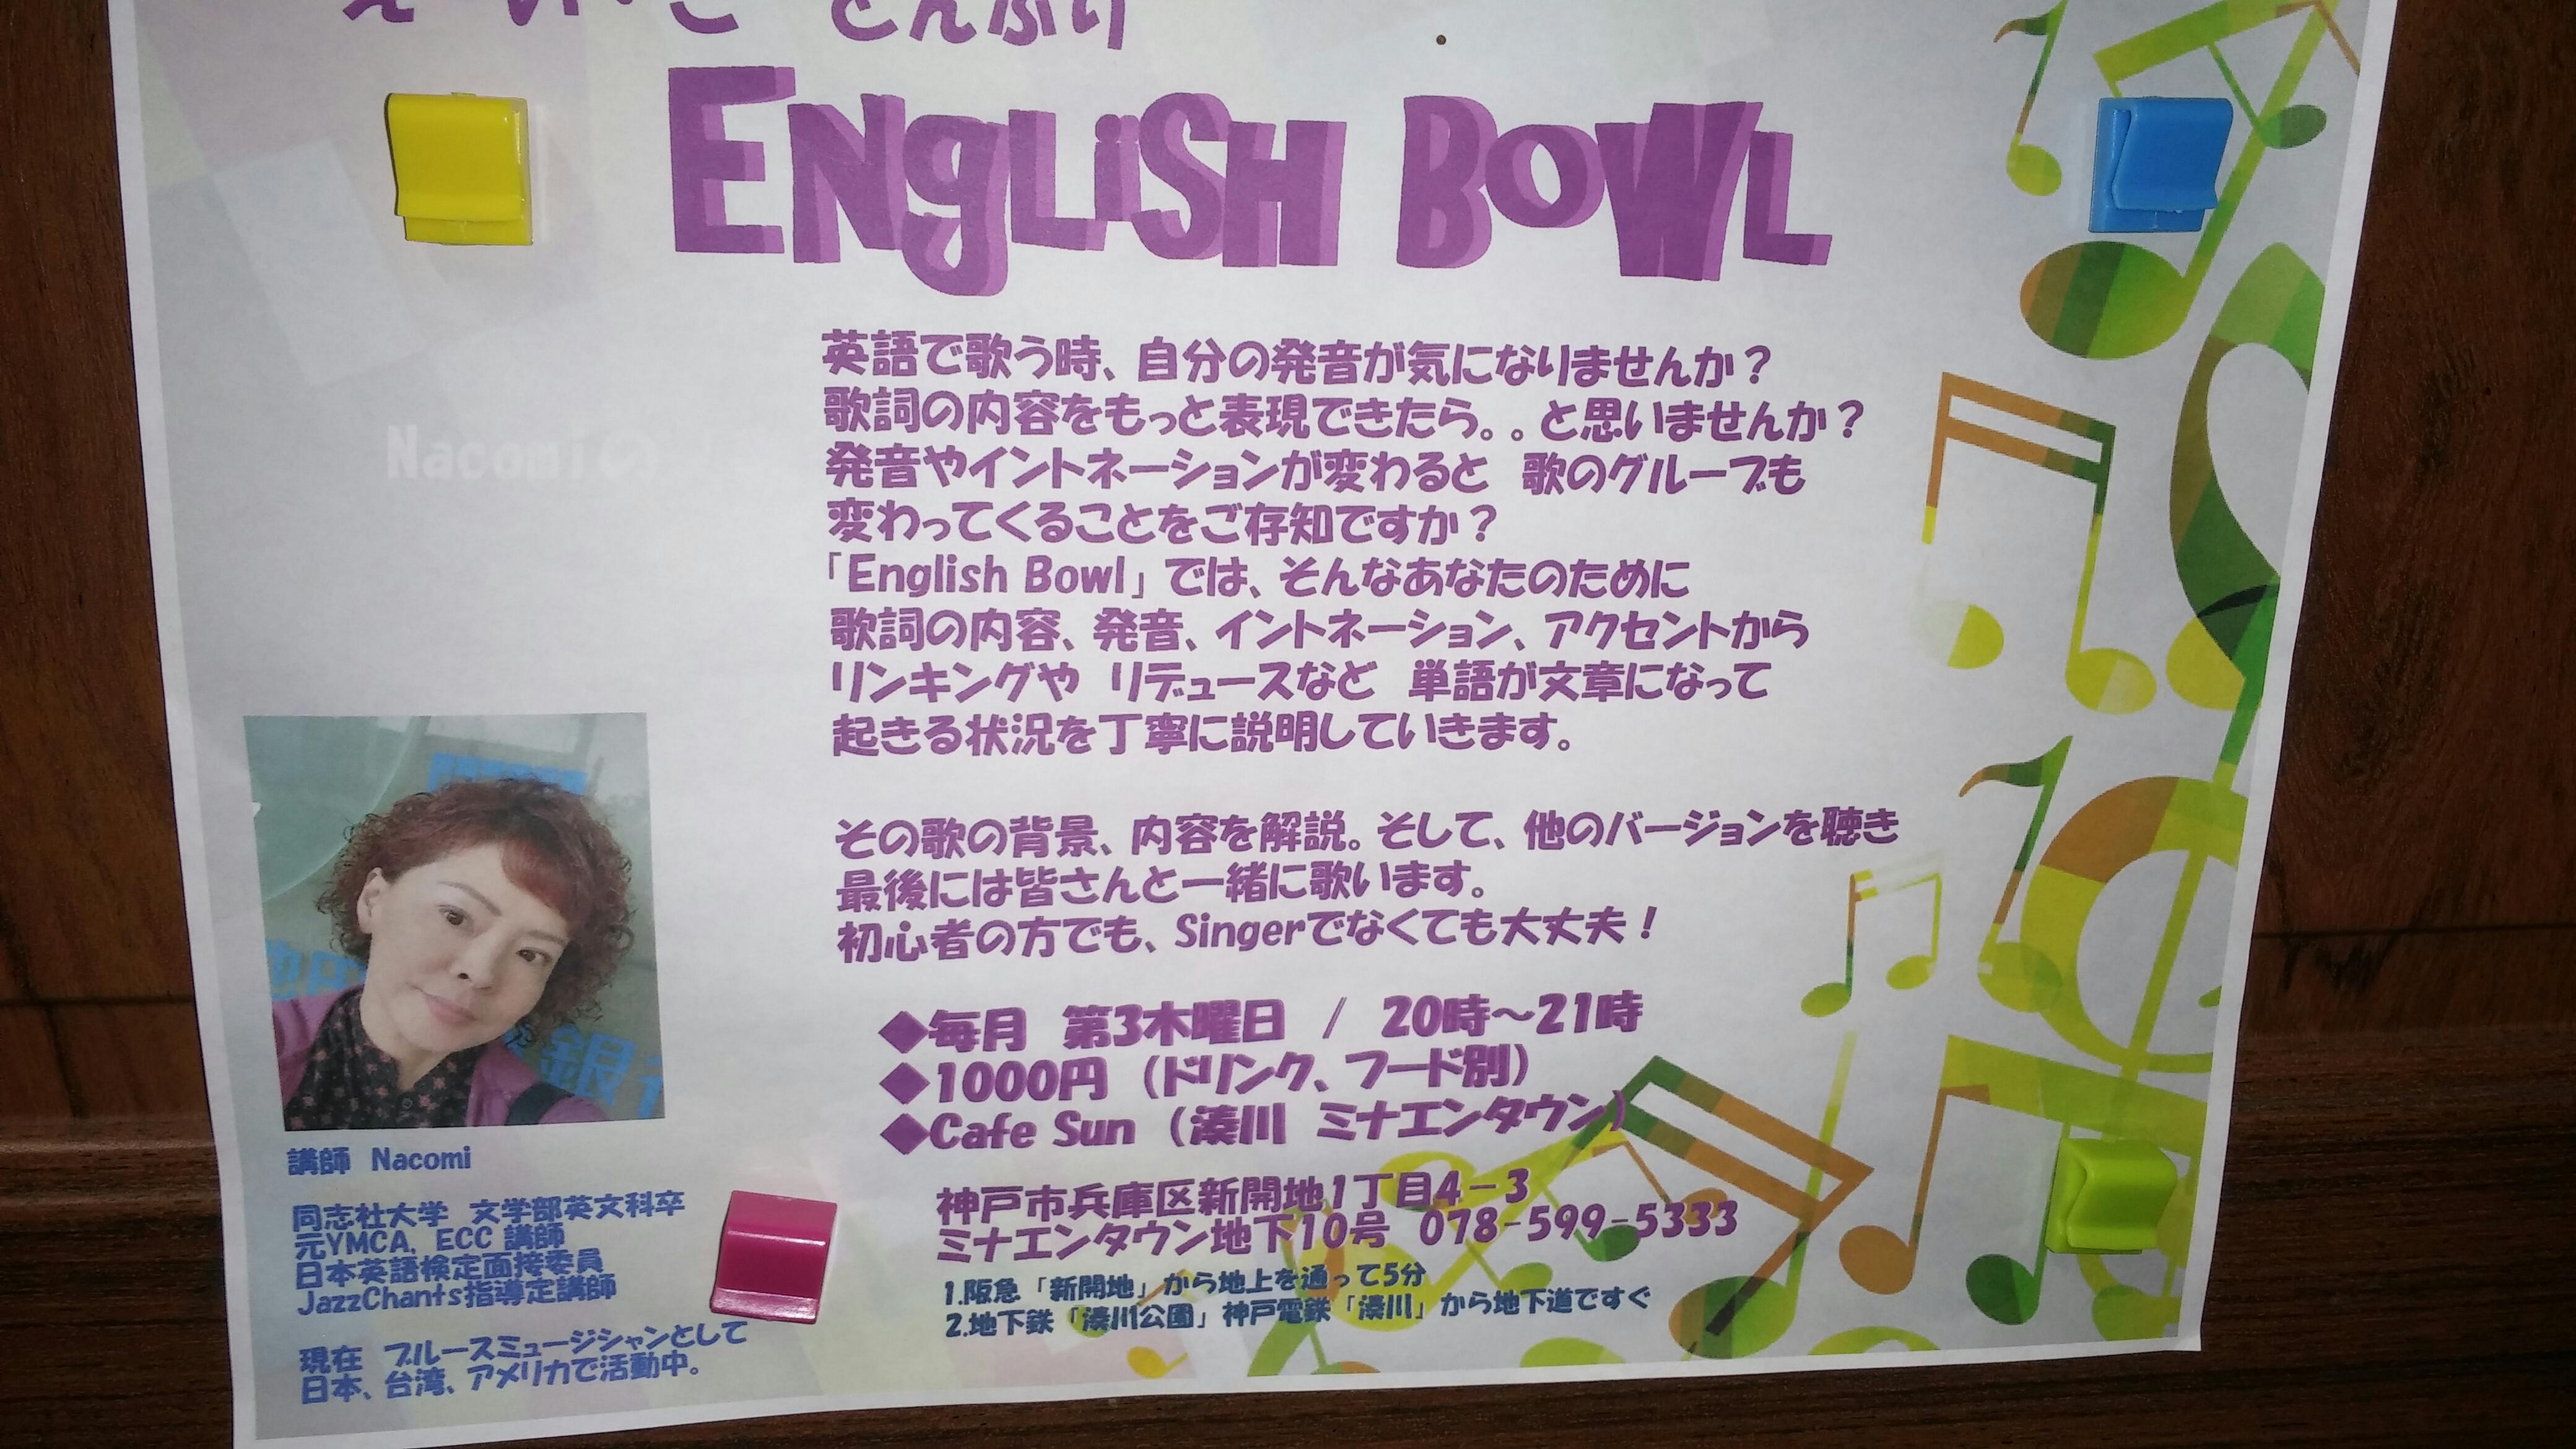 えいご どんぶり
ENGLISH BOWL
英語で歌う時、自分の発音が気になりませんか？
歌詞の内容をもっと表現できたら。。と思いませんか？
発音やイントネーションが変わると 歌のグルーブも
変わってくることをご存知ですか？
「English Bowl」では、そんなあなたのために
歌詞の内容、発音、イントネーション、アクセントから
リンキングや リデュースなど 単語が文章になって
起きる状況を丁寧に説明していきます。
その歌の背景、内容を解説。そして、他のバージョンを聴き
最後には皆さんと一緒に歌います。
初心者の方でも、Singerでなくても大丈夫！
◆毎月 第3木曜日 / 20時～21時
◆1000円（ドリンク、フード別）
◆Cafe Sun（湊川 ミナエンタウン）
神戸市兵庫区新開地1丁目4－3
ミナエンタウン地下10号 078-599-5333
1.阪急「新開地」から地上を通って5分
2.地下鉄「湊川公園」神戸電鉄「湊川」から地下道ですぐ
Nacomiの
銀行
講師 Nacomi
同志社大学 文学部英文科卒
元YMCA, ECC 講師
日本英語検定面接委員
JazzChants指導定講師
現在 ブルースミュージシャンとして
日本、台湾、アメリカで活動中。